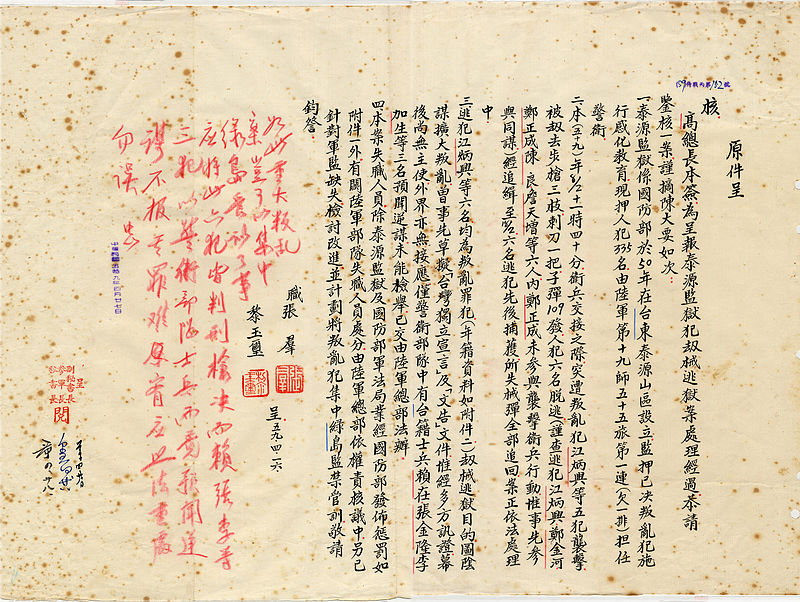 原件呈
核
高總長本簽為呈報泰源監獄犯劫械逃獄案處理經過恭請
鑒核一案謹摘陳大要如次
一泰源監獄係國防部於50年在台東泰源山區設立監押已决叛亂犯施
行感化教育現押人犯335名由陸軍第十九師五十五旅第一連(欠一排)担任
警衛
二本(五十九)年2/8十一時四十分衛兵交接之際突遭叛亂犯江炳興等五犯襲擊
被劫去步槍三枝刺刀一把子彈109發人犯六名脫逃(謹查逃犯江炳興鄭金河
鄭正成陳良詹天增等六人內鄭正成未參與襲擊衛兵行動惟事先參
與同謀)經追緝至2/18六名逃犯先後捕獲所失械彈全部追回案正依法處理
中
三逃犯江炳興等六名均為叛亂罪犯(年籍資料如附件二)劫械逃獄目的圖陰
謀擴大叛亂曾事先草擬「台灣獨立宣言」及「文告」文件惟經多方訊證幕
後尚無主使外界亦無接應僅警衛部隊中有台籍士兵賴在張金隆李
加生等三名預聞逆謀未能檢舉已交由陸軍總部法辦
四本案失職人員除泰源監獄及國防部軍法局業經國防部發佈懲罰如
附件一外有關陸軍部隊失職人員處分由陸軍總部依權責核議中另已
針對軍監缺失檢討改進並計劃將叛亂犯集中綠島監禁管訓敬請
鈞詧
職張羣
黎玉璽
呈五九四十六
如此重大叛亂
案豈可以集中
綠島管訓了事
應將此六犯皆判刑槍决而賴張李等
三犯以警衛部隊士兵而竟預聞逆
謀不報其罪難宥應照法重處
勿誤
中華民國五十九年四月廿七日
呈
副秘書長
參軍長
秘書長
閱